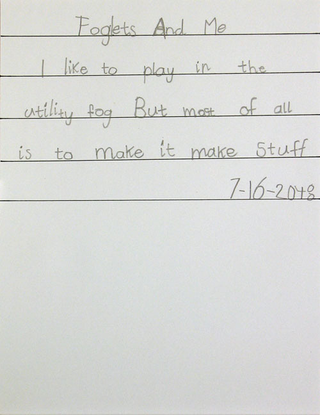 Foglets And Me
I like to play in the
utility fog But most of all
is to make it make Stuff
7-16-2048